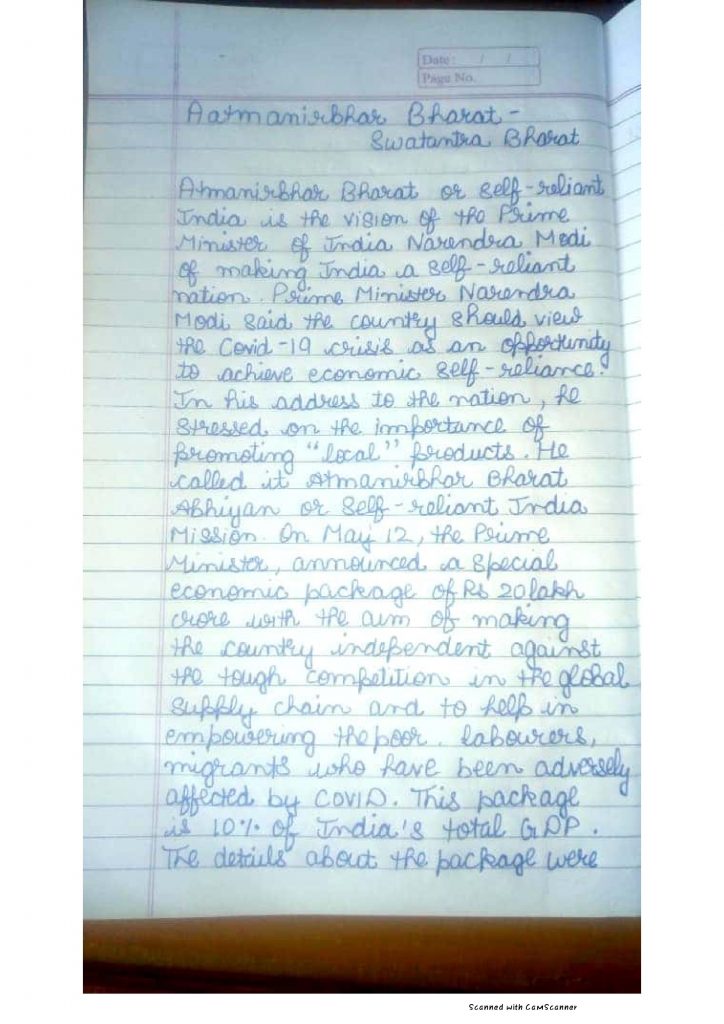 Date: / /
Page No.
Aatmanirbhar Bharat -
Swatantra Bharat
Atmanirbhar Bharat or self-reliant
India is the vision of the Prime
Minister of India Narendra Modi
of making India a self-reliant
nation. Prime Minister Narendra
Modi said the country should view
the Covid-19 crisis as an opportunity
to achieve economic self-reliance.
In his address to the nation, he
stressed on the importance of
promoting "local" products. He
called it Atmanirbhar Bharat
Abhiyan or Self-reliant India
Mission. On May 12, the Prime
Minister, announced a special
economic package of Rs 20 lakh
crore with the aim of making
the country independent against
the tough competition in the global
supply chain and to help in
empowering the poor. labourers,
migrants who have been adversely
affected by COVID. This package
is 10% of India's total GDP.
The details about the package were
Scanned with CamScanner